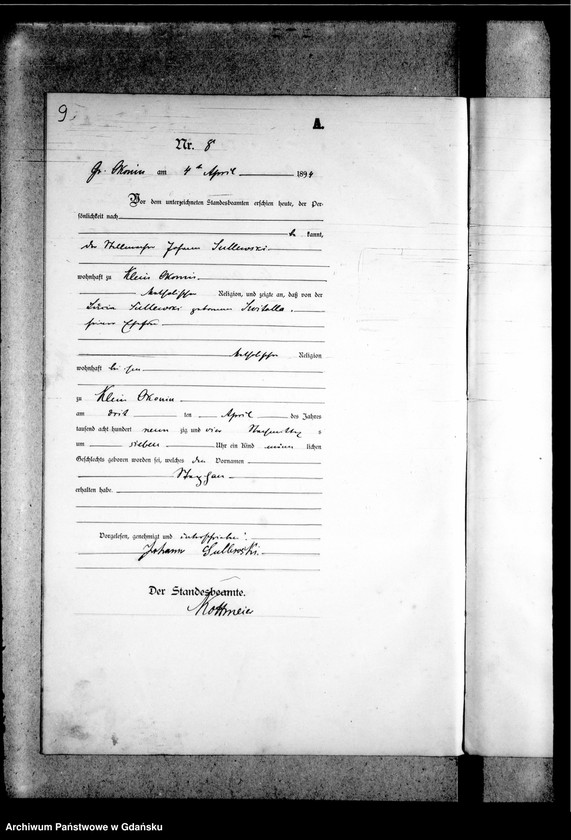 9
A.
Nr. 8
Gr. Okonin am 4ten April 1894
Vor dem unterzeichneten Standesbeamten erschien heute, der Per-
sönlichkeit nach
be kannt,
der Stellmacher Johann Sullewski
wohnhaft zu Klein Okonin
katholischer Religion, und zeigte an, daß von der
Sullewski geborenen
seiner Ehefrau
katholischer Religion
wohnhaft bei ihm
zu Klein Okonin
am drit ten April des Jahres
tausend acht hundert neun zig und vier Nachmittag s
um sieben Uhr ein Kind männ lichen
Geschlechts geboren worden sei, welches den Vornamen
Stephan
erhalten habe.
Vorgelesen, genehmigt und unterschrieben
Johann Sullewski.
Der Standesbeamte.
Kottmeier
Archiwum Państwowe w Gdańsku